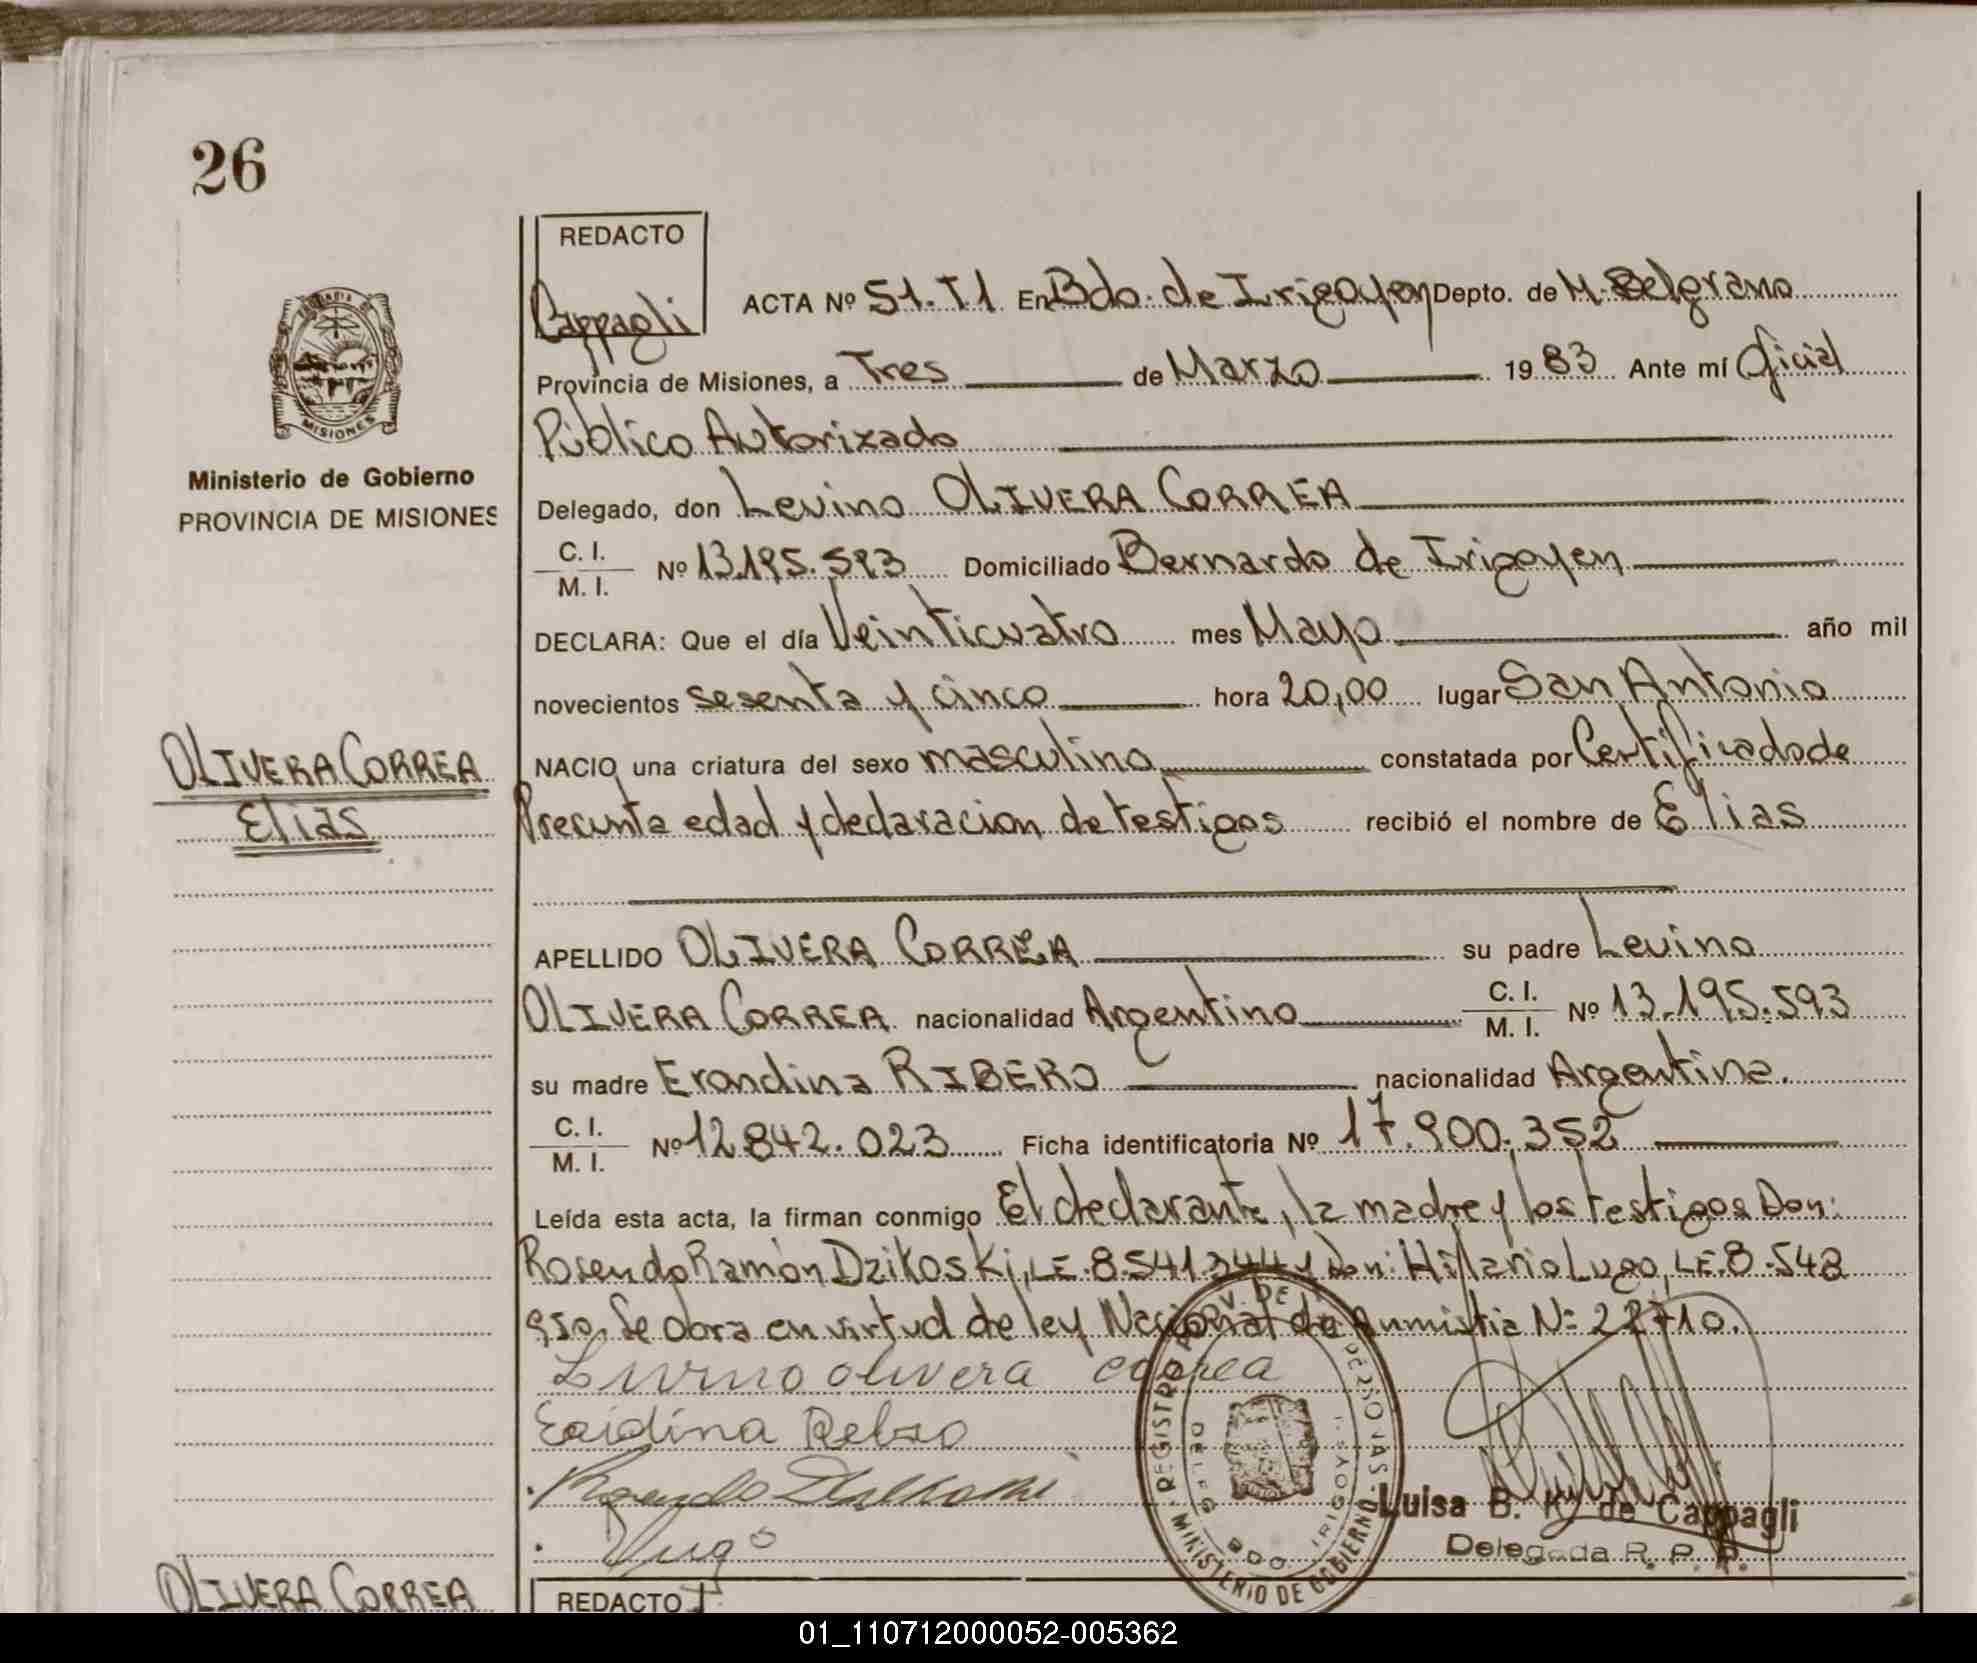 26
REDACTO
Cappagli
ACTA Nº 51.T1 En Bdo. de Irigoyen Depto. de M. Belgrano
Provincia de Misiones, a Tres de Marzo 1983 Ante mí Oficial
Público Autorizado
MISIONES
Ministerio de Gobierno
PROVINCIA DE MISIONES
Delegado, don Levino OLIVERA CORREA
C. I.
M. I.
Nº 13.195.593 Domiciliado Bernardo de Irigoyen
DECLARA: Que el día Veinticuatro mes Mayo año mil
novecientos sesenta y cinco hora 20,00 lugar San Antonio
OLIVERA CORREA
Elias
NACIO una criatura del sexo masculino constatada por Certificado de
Presunta edad y declaracion de testigos recibió el nombre de Elias
APELLIDO OLIVERA CORREA su padre Levino
OLIVERA CORREA nacionalidad Argentino C. I. M. I. Nº 13.195.593
su madre Erondina RIBERO nacionalidad Argentina.
C. I.
M. I.
Nº 12.842.023 Ficha identificatoria Nº 17.900.352
Leída esta acta, la firman conmigo El declarante, la madre y los testigos Don:
Rosendo Ramón Dzikoski, LE. 8.541.344 y Don: Hilario Lugo, LE. 8.548
950. Se obra en virtud de ley Nacional de Anmistia Nº 22710.
Livino olivera correa
Lugo
REGISTRO PROV. DE LAS PERSONAS
DELEG. BDO. IRIGOYEN
MINISTERIO DE GOBIERNO
Luisa B. K. de Cappagli
Delegada R. P. P.
OLIVERA CORREA
REDACTO
01_110712000052-005362